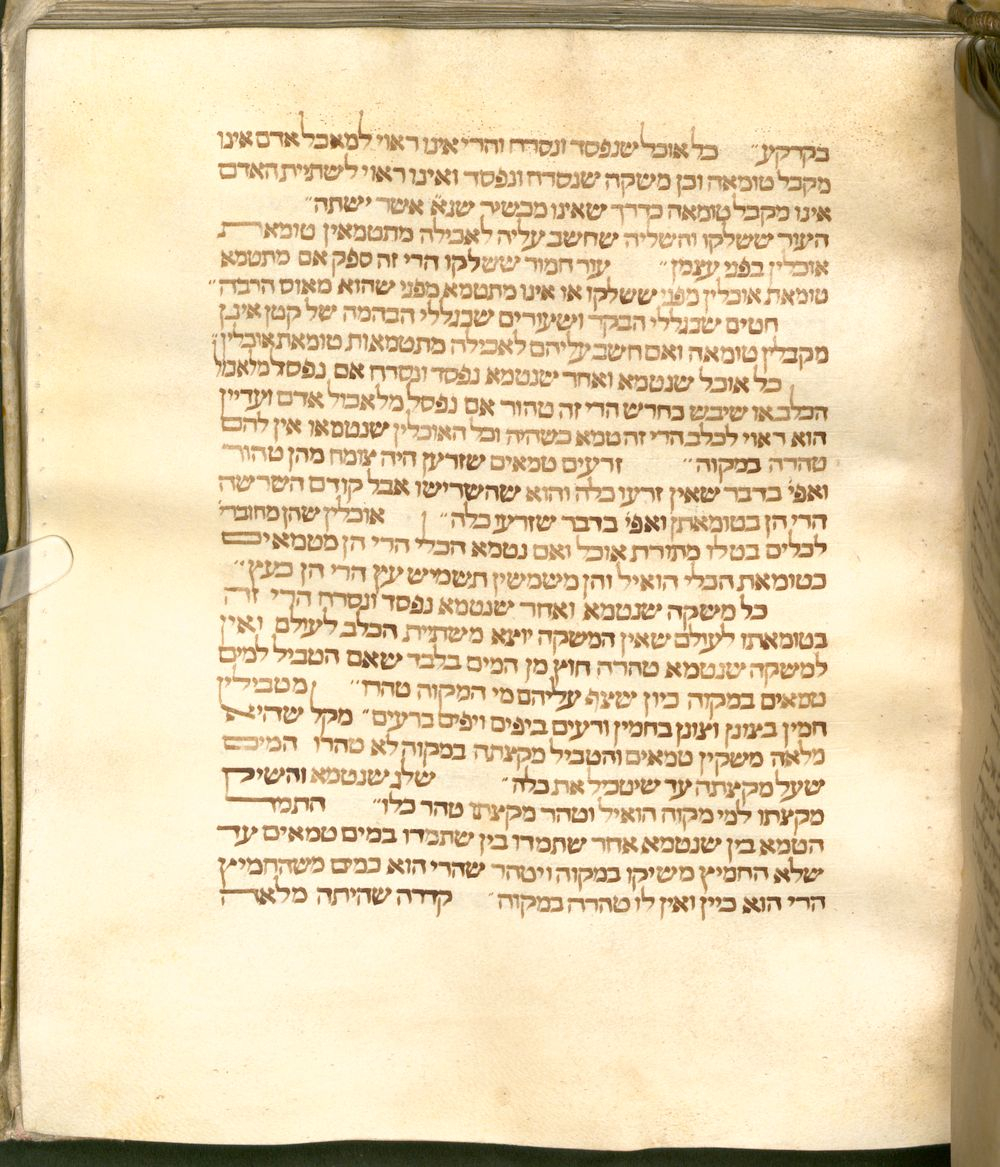 בקרקע״ כל אוכל שנפסד ונסרח והרי אינו ראוי למאכל אדם אינו
מקבל טומאה וכן משקה שנסרח ונפסד ואינו ראוי לשתיית האדם
אינו מקבל טומאה כדרך שאינו מכשיר שנא׳ אשר ישתה״
העור ששלקו והשליה שחשב עליה לאכילה מתטמאין טומאת
אוכלין בפני עצמן״ עור חמור ששלקו הרי זה ספק אם מתטמא
טומאת אוכלין מפני ששלקו או אינו מתטמא מפני שהוא מאוס הרבה״
חטים שבגללי הבקר ושעורים שבגללי הבהמה של קטן אינן
מקבלין טומאה ואם חשב עליהם לאכילה מתטמאות טומאת אוכלין״
כל אוכל שנטמא ואחר שנטמא נפסד ונסרח אם נפסל מלאכול
הכלב או שיבש כחרש הרי זה טהור אם נפסל מלאכול אדם ועדיין
הוא ראוי לכלב הרי זה טמא כשהיה וכל האוכלין שנטמאו אין להם
טהרה במקוה״ זרעים טמאים שזרען היה צומח מהן טהור
ואפי׳ בדבר שאין זרעו כלה והוא שהשרישו אבל קודם השרשה
הרי הן בטומאתן ואפי׳ בדבר שזרעו כלה״ אוכלין שהן מחוברי׳
לכלים בטלו מתורת אוכל ואם נטמא הכלי הרי הן מטמאים
בטומאת הכלי הואיל והן משמשין תשמיש עץ הרי הן כעץ״
כל משקה שנטמא ואחר שנטמא נפסד ונסרח הרי זה
בטומאתו לעולם שאין המשקה יוצא משתיית הכלב לעולם ואין
למשקה שנטמא טהרה חוץ מן המים בלבד שאם הטביל למים
טמאים במקוה כיון שצף עליהם מי המקוה טהרו״ מטבילין
חמין בצונן וצונן בחמין ורעים ביפים ויפים ברעים״ מקל שהיא
מלאה משקין טמאים והטביל מקצתה במקוה לא טהרו המים
שעל מקצתה עד שיטביל את כלה״ שלג שנטמא והשיק
מקצתו למי מקוה הואיל וטהר מקצתו טהר כלו״ התמד
הטמא בין שנטמא אחר שתמדו בין שתמדו במים טמאים עד
שלא החמיץ משיקו במקוה ויטהר שהרי הוא כמים משהחמיץ
הרי הוא כיין ואין לו טהרה במקוה״ קדרה שהיתה מלאה